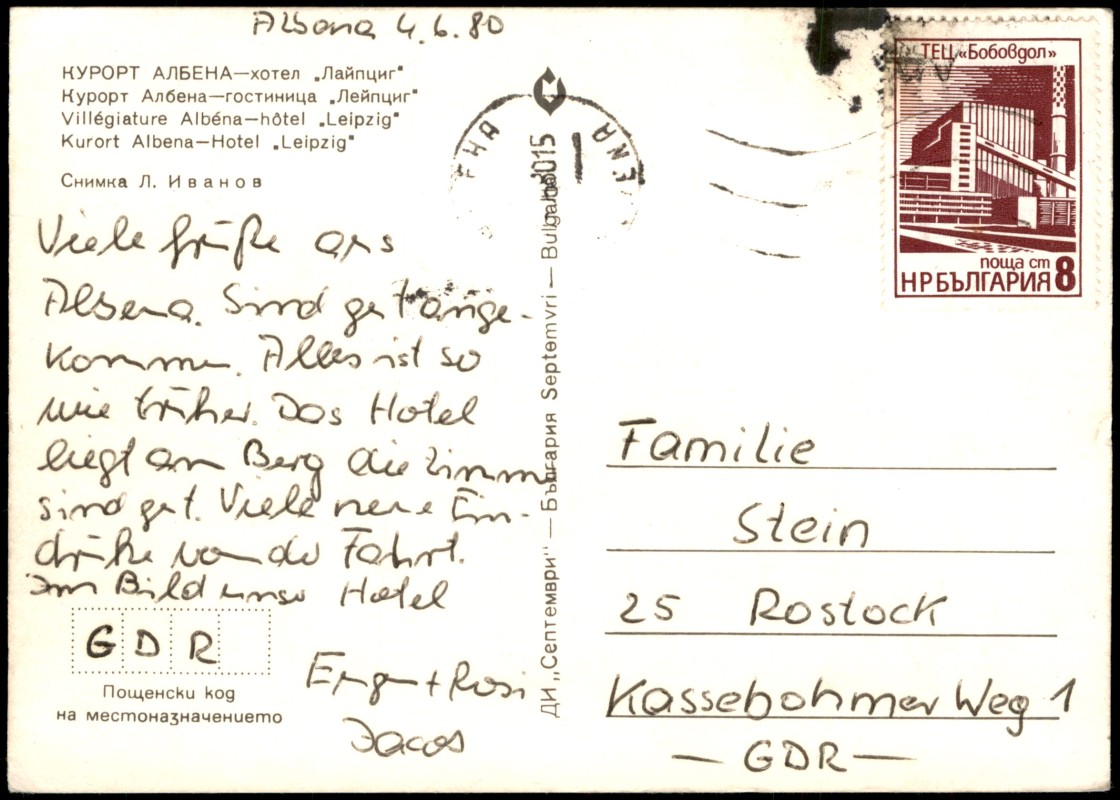 Albena 4.6.80
КУРОРТ АЛБЕНА—хотел „Лайпциг"
Курорт Албена—гостиница „Лейпциг"
Villégiature Albéna—hôtel „Leipzig"
Kurort Albena—Hotel „Leipzig"
Снимка Л. Иванов
Viele Grüße aus
Albena. Sind gut ange-
kommen. Alles ist so
wie früher. Das Hotel
liegt am Berg die Zimm
sind gut. Viele neue Ein-
drücke von der Fahrt.
Im Bild unser Hotel
+ Rosi
GDR
Пощенски код
на местоназначението
ДИ „Септември" — България Septemvri — Bulgaria
3015
ТЕЦ „Бобовдол"
поща ст 8
НР БЪЛГАРИЯ
Familie
Stein
25 Rostock
Kassebohmer Weg 1
— GDR —